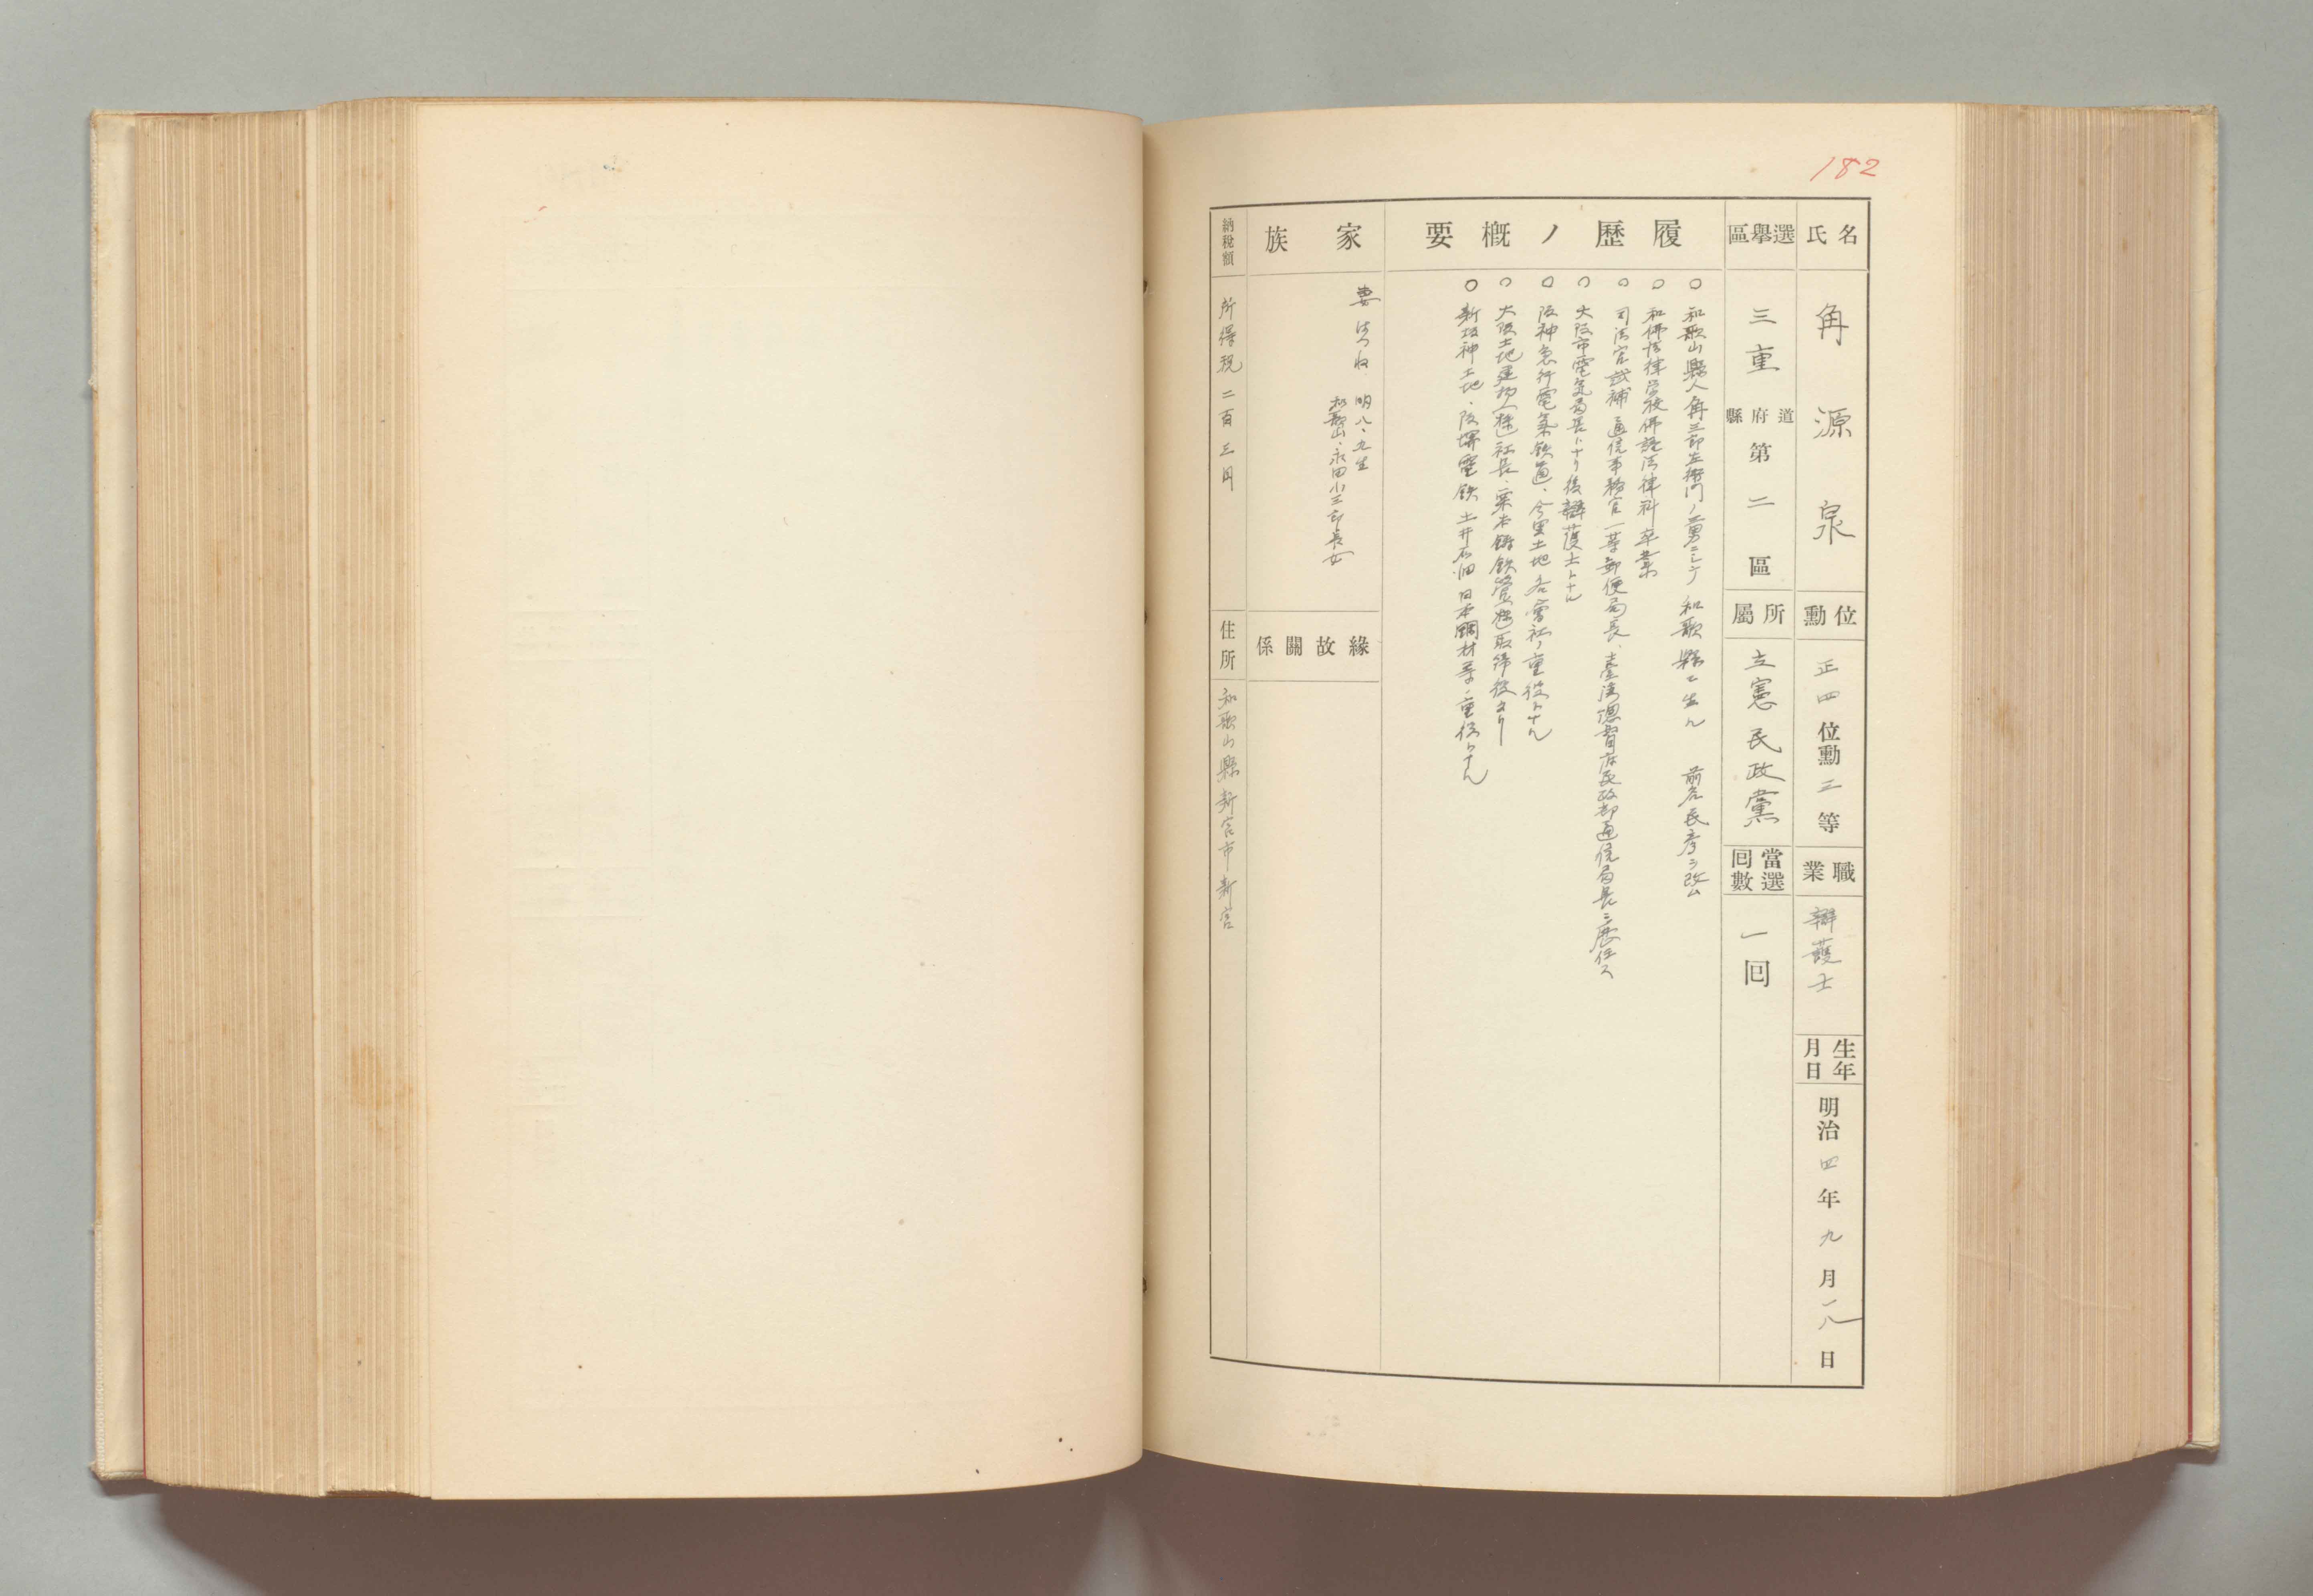 182
氏名
角源泉
位勳
正四位勳三等
職業
辯護士
生年月日
明治四年九月一八日
選擧區
三重道府縣第二區
所屬
立憲民政黨
當選囘數
一囘
履歷ノ槪要
○和歌山縣人角三郎左衞門ノ三男ニシテ 和歌縣ニ生ル 前名民彥ヲ改ム
○和佛法律学校佛語法律科卒業
○司法官試補 通信事務官 一等郵便局長、臺湾總督府民政部通信局長ニ歷任ス
○大阪市電気局長トナリ後辯護士トナル
○阪神急行電氣鉄道、今里土地各會社ノ重役トナル
○大阪土地建物(株)社長、栗本鋳鉄(株)取締役タリ
○新阪神土地・阪堺電鉄 土井石油 日本鋼材等ノ重役トナル
家族
妻 はつね 明八・九生
和歌山・永田小三郎長女
緣故關係
納稅額
所得税二百三円
住所
和歌山縣新宮市新宮